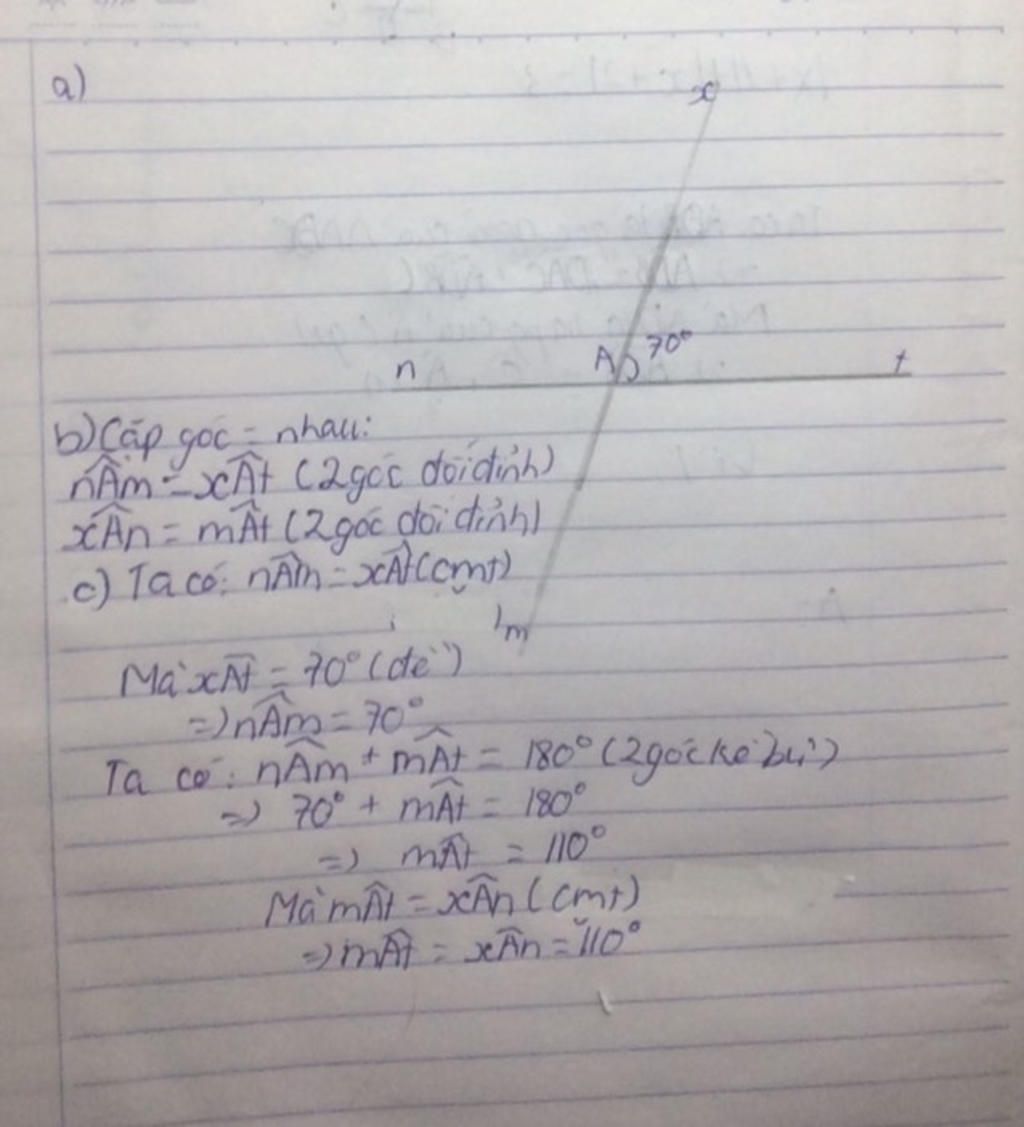 a)
x
A 70°
n
t
b) Cặp góc = nhau:
nÂm = xÂt (2 góc đối đỉnh)
xÂn = mÂt (2 góc đối đỉnh)
c) Ta có: nÂm = xÂt (cmt)
m
Mà xÂt = 70° (đề)
=> nÂm = 70°
Ta có: nÂm + mÂt = 180° (2 góc kề bù)
=> 70° + mÂt = 180°
=> mÂt = 110°
Mà mÂt = xÂn (cmt)
=> mÂt = xÂn = 110°